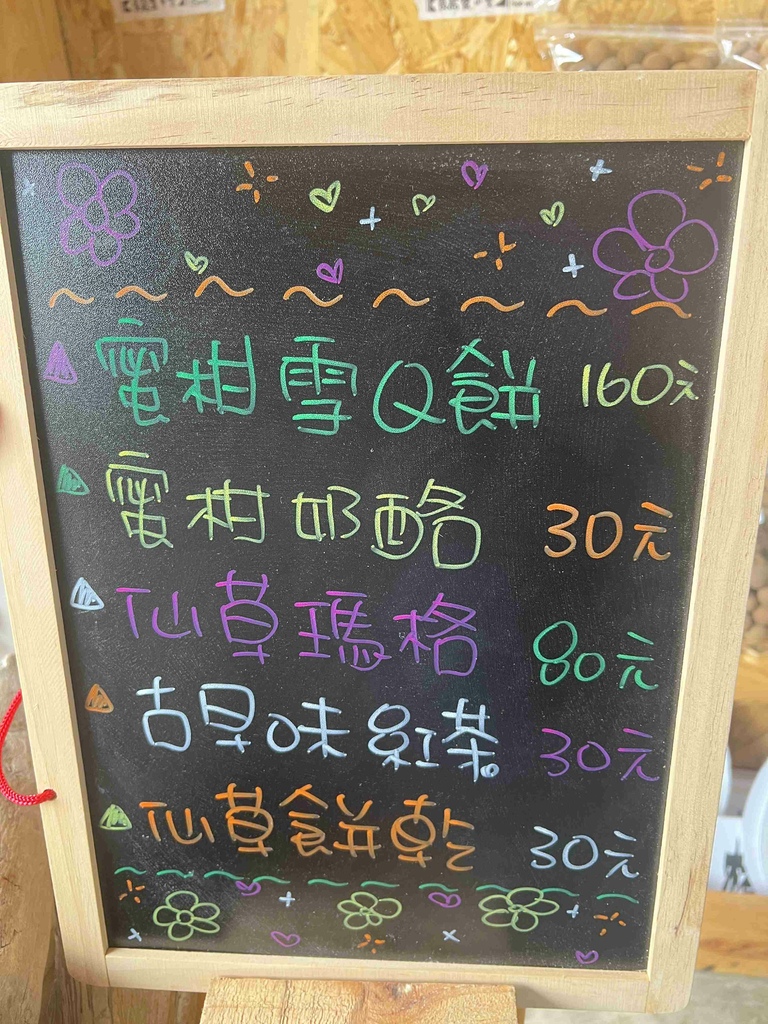 蜜柑雪Q餅 160元
蜜柑奶酪 30元
仙草瑪格 80元
古早味紅茶 30元
仙草餅乾 30元